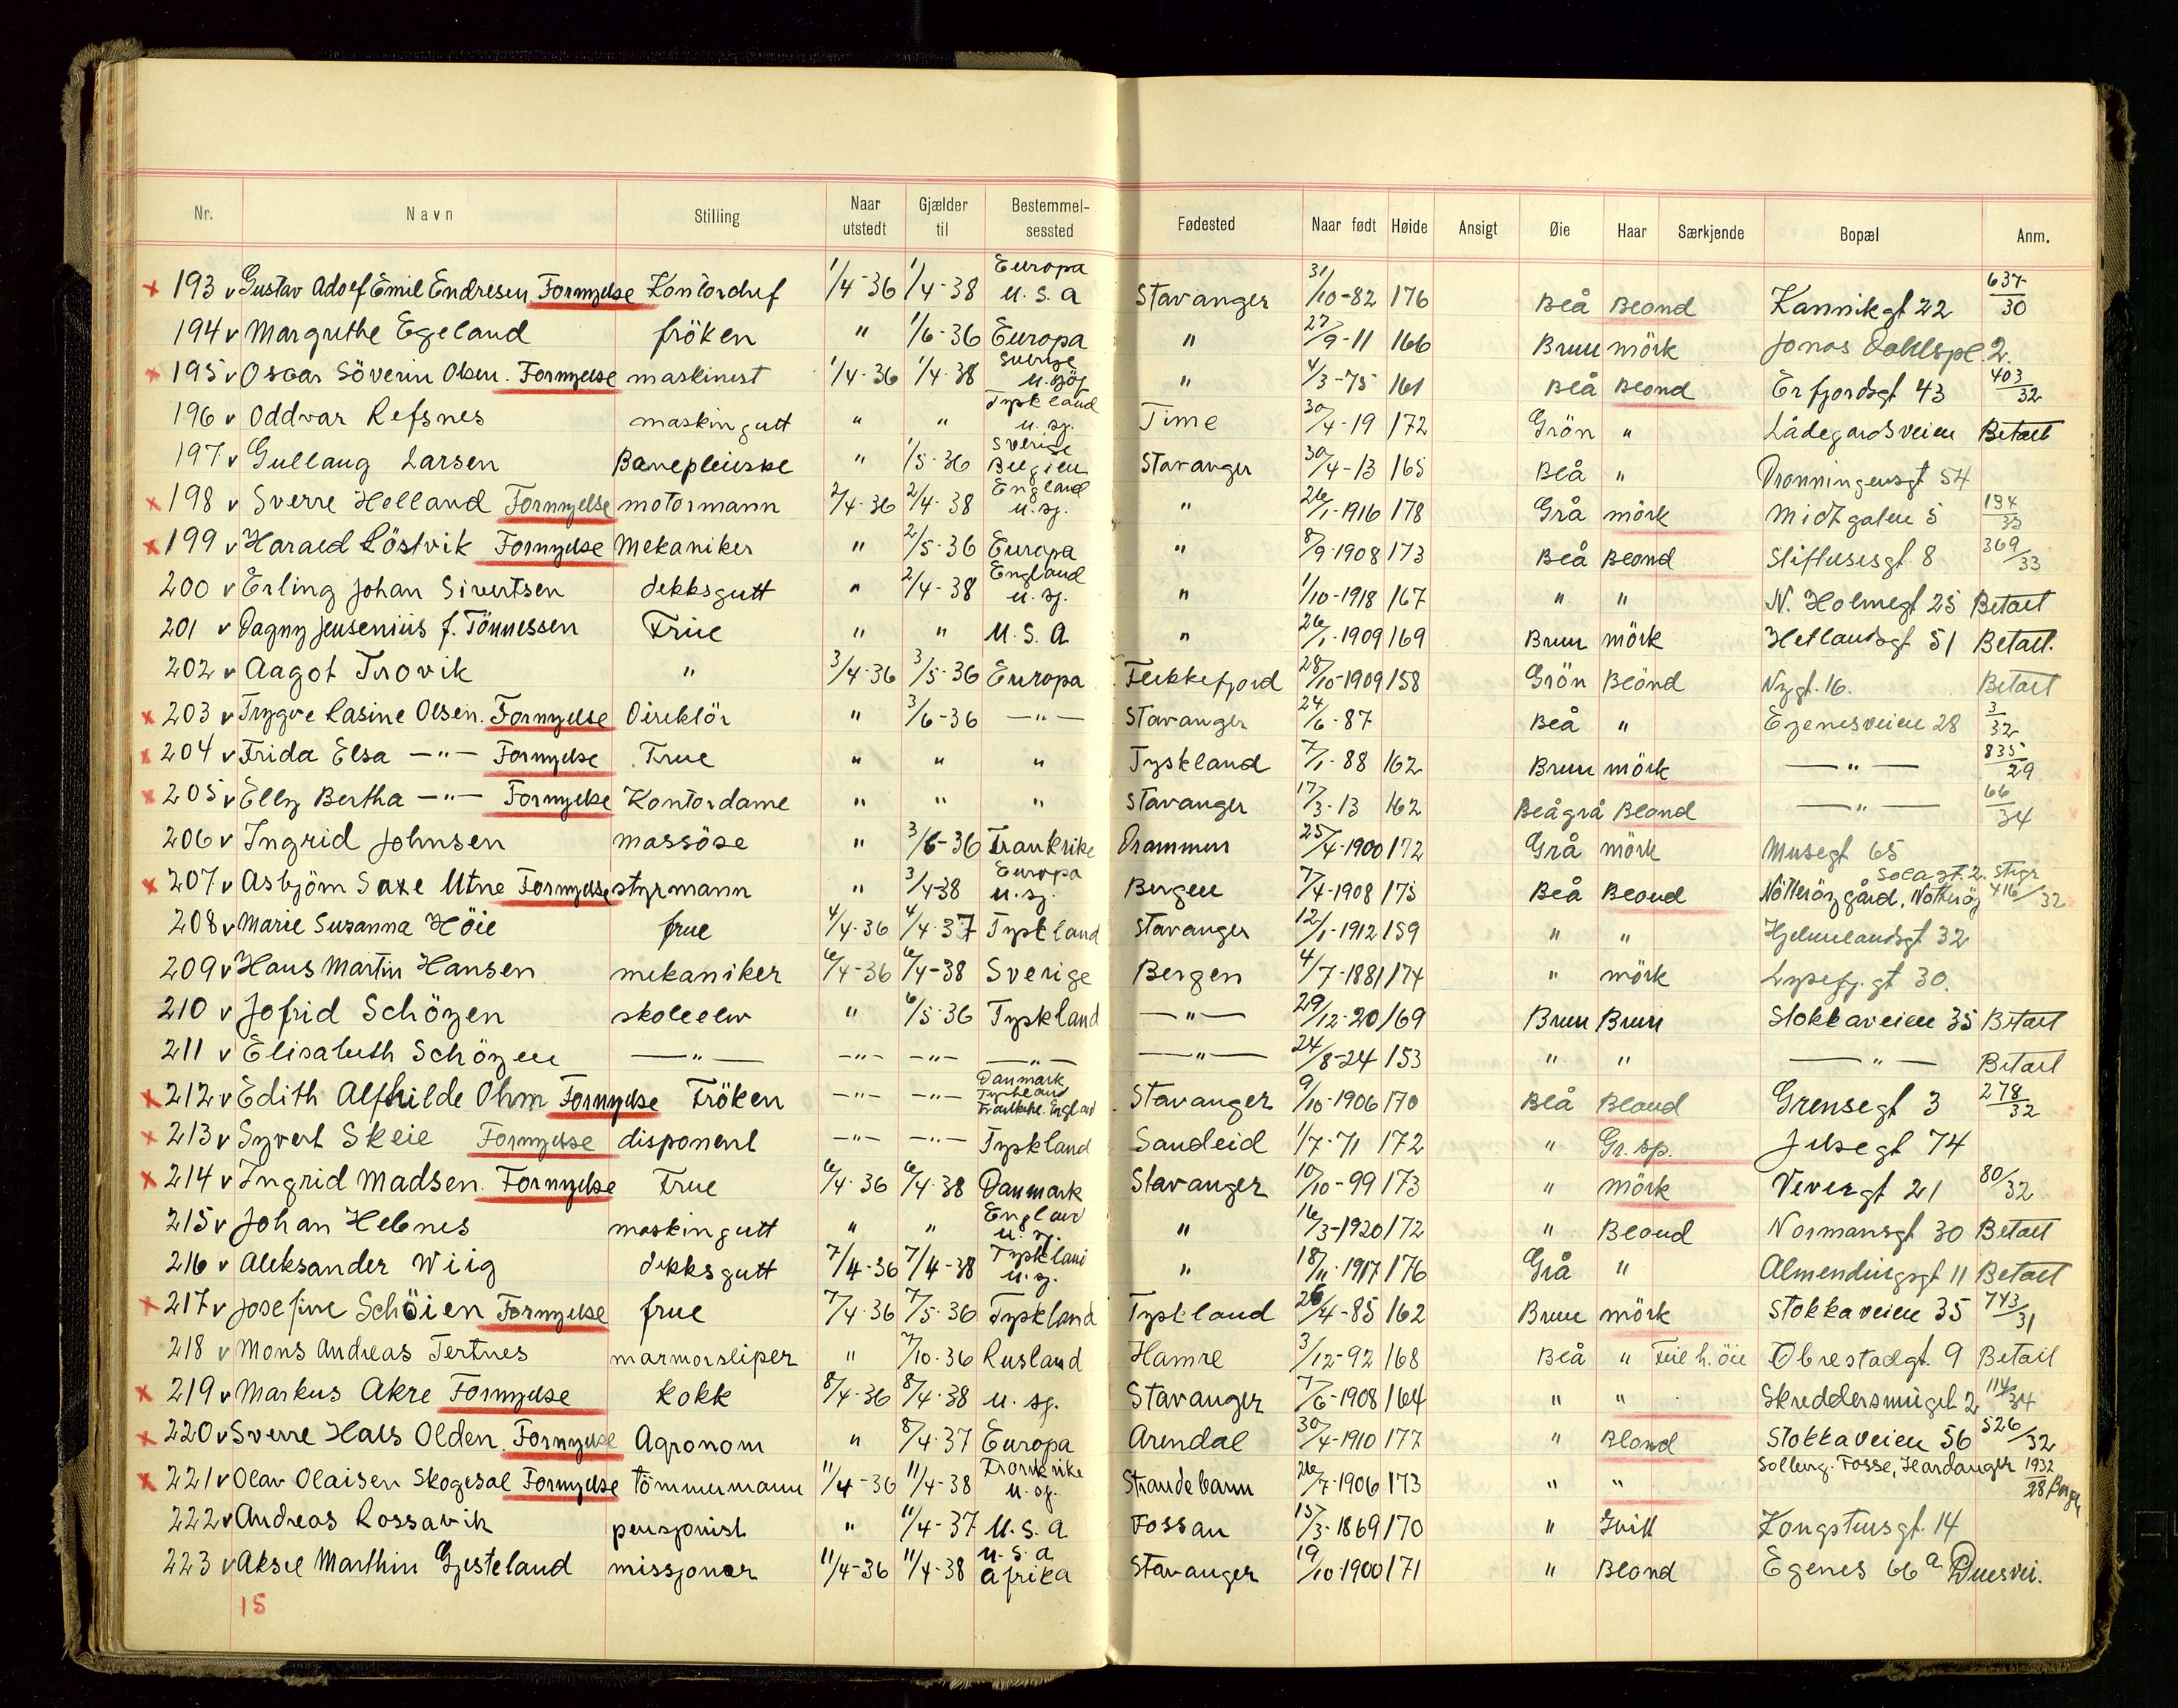 Nr. Navn Stilling Naar utstedt Gjælder til Bestemmel-sessted Fødested Naar født Høide Ansigt Øie Haar Særkjende Bopæl Anm.
x 193 v Gustav Adolf Emil Endresen Fornyelse Kontorchef 1/4-36 1/4-38 Europa U.S.A Stavanger 31/10-82 176 Blå Blond Kannikgt 22 637/30
194 v Margrethe Egeland fröken " 1/6-36 Europa " 27/9-11 166 Brun mörk Jonas Dahlspl. 2.
x 195 v Oscar Söverin Olsen. Fornyelse maskinist 1/4-36 1/4-38 Sverige " 4/3-75 161 Blå Blond Erfjordsgt 43 403/32
196 v Oddvar Refsnes maskingutt " " Tyskland u.sj. Time 30/4-19 172 Grön " Lådegårdsveien Betalt
197 v Gullaug Larsen " 1/5-36 Sverige Belgien Stavanger 30/4-13 165 Blå " Dronningensgt 54
x 198 v Sverre Helland Fornyelse motormann 2/4-36 2/4-38 England u.sj. " 26/1-1916 178 Grå mörk Midtgaten 5 134/33
x 199 v Harald Löstvik Fornyelse Mekaniker " 2/5-36 Europa " 8/9-1908 173 Blå Blond Stiftelsesgt. 8 369/33
200 v Erling Johan Sivertsen dekksgutt " 2/4-38 England u.sj. " 1/10-1918 167 " " N. Holmegt 25 Betalt
201 v Dagny Jensenius f. Tönnessen Frue " " U.S.A " 26/1-1909 169 Brun mörk Hetlandsgt 51 Betalt.
202 v Aagot Trovik " 3/4-36 3/5-36 Europa Flekkefjord 28/10-1909 158 Grön Blond Nygt. 16. Betalt
x 203 v Trygve Rasine Olsen. Fornyelse Direktör " 3/6-36 —"— Stavanger 24/6-87 Blå " Egenesveien 28 3/32
x 204 v Frida Elsa —"— Fornyelse Frue " " " Tyskland 7/1-88 162 Brun mörk —"— 835/29
x 205 v Elly Bertha —"— Fornyelse Kontordame " " " Stavanger 17/3-13 162 Blågrå Blond —"— 66/34
206 v Ingrid Johnsen massöse " 3/6-36 Frankrike Drammen 25/4-1900 172 Grå mörk Musegt 65
x 207 v Asbjörn Saxe Utne Fornyelse styrmann " 3/4-38 Europa u.sj. Bergen 7/4-1908 175 Blå Blond Solagt. 2. Stgr Nötteröy gård, Nötteröy 416/32
208 v Marie Susanna Höie frue 4/4-36 4/4-37 Tyskland Stavanger 12/1-1912 159 " " Hjelmelandsgt 32
209 v Hans Martin Hansen mekaniker 6/4-36 6/4-38 Sverige Bergen 4/7-1881 174 " mörk Lysefj.gt 30.
210 v Jofrid Schöyen skoleelev " 6/5-36 Tyskland —"— 29/12-20 169 Brun Brun Stokkaveien 35 Betalt
211 v Elisabeth Schöyen —"— —"— —"— —"— —"— 24/8-24 153 " " —"— Betalt
x 212 v Edith Alfhilde Ohm Fornyelse Fröken —"— —"— Danmark Tyskland Frankrike. England Stavanger 9/10-1906 170 Blå Blond Grensegt 3 278/32
x 213 v Syvert Skeie Fornyelse disponent —"— —"— Tyskland Sandeid 1/7-71 172 " Gr. sp. Jelsegt 74
x 214 v Ingrid Madsen. Fornyelse Frue 6/4-36 6/4-38 Danmark Stavanger 10/10-99 173 " Mörk Vevergt 21 80/32
215 v Johan Hebnes maskingutt " " England u.sj. " 16/3-1920 172 " Blond Normansgt 30 Betalt
216 v Aleksander Wiig dekksgutt 7/4-36 7/4-38 Tyskland u.sj. " 18/11-1917 176 Grå " Almendingsgt 11 Betalt
x 217 v Josefine Schöien Fornyelse frue 7/4-36 7/5-36 Tyskland Tyskland 26/4-85 162 Brun mörk Stokkaveien 35 743/31
218 v Mons Andreas Tertnes marmorsliper " 7/10-36 Rusland Hamre 3/12-92 168 Blå " Feil h. öie Obrestadgt. 9 Betalt
x 219 v Markus Akre Fornyelse kokk 8/4-36 8/4-38 u. sj. Stavanger 7/6-1908 164 " " Skreddersmuget 2 114/34
x 220 v Sverre Hals Olden. Fornyelse Agronom " 8/4-37 Europa Arendal 30/4-1910 177 " Blond Stokkaveien 56 526/32
x 221 v Olav Olaisen Skogesal Fornyelse tömmermann 11/4-36 11/4-38 Frankrike u.sj. Strandebarm 26/7-1906 173 " " Solberg. Fosse, Hardanger 1932/28 Bergen
222 v Andreas Rossavik pensjonist " 11/4-37 U.S.A Fossan 15/3-1869 170 " Hvitt Kongstensgt. 14
223 v Aksel Marthin Gjesteland missjonær 11/4-36 11/4-38 U.S.A Afrika Stavanger 19/10-1900 171 " Blond Egenes 66 a Duesvei.
15